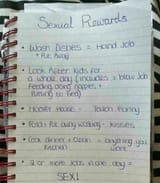 Sexual Rewards
• Wash Dishes = Hand Job
+ Put Away
• Look After Kids for
a whole day (includes = Blow Job
Feeding, doing nappies +
Putting to bed)
• Hoover House =
• Fold + Put away washing - Kisses
• Cook dinner + Clean = anything you
want
• 2 or more Jobs in one day =
SEX!